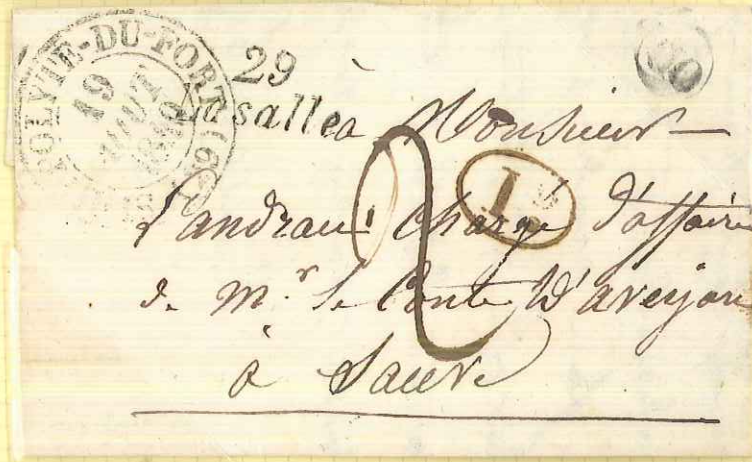 POLYTE-DU-FORT (29)
19
AOUT
29
Lasalle
à Monsieur
chargé d'affaire
de Mr. le Comte D'aveyan
à Sauve
2